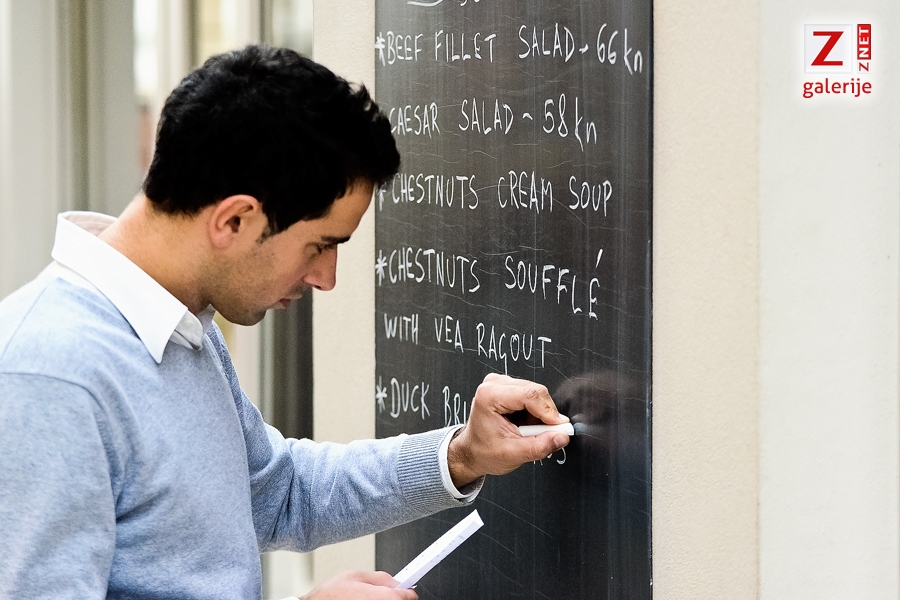 *BEEF FILLET SALAD ~ 66 kn
CAESAR SALAD ~ 58 kn
CHESTNUTS CREAM SOUP
*CHESTNUTS SOUFFLÉ
WITH VEA RAGOUT
*DUCK
Z ZNET
galerije